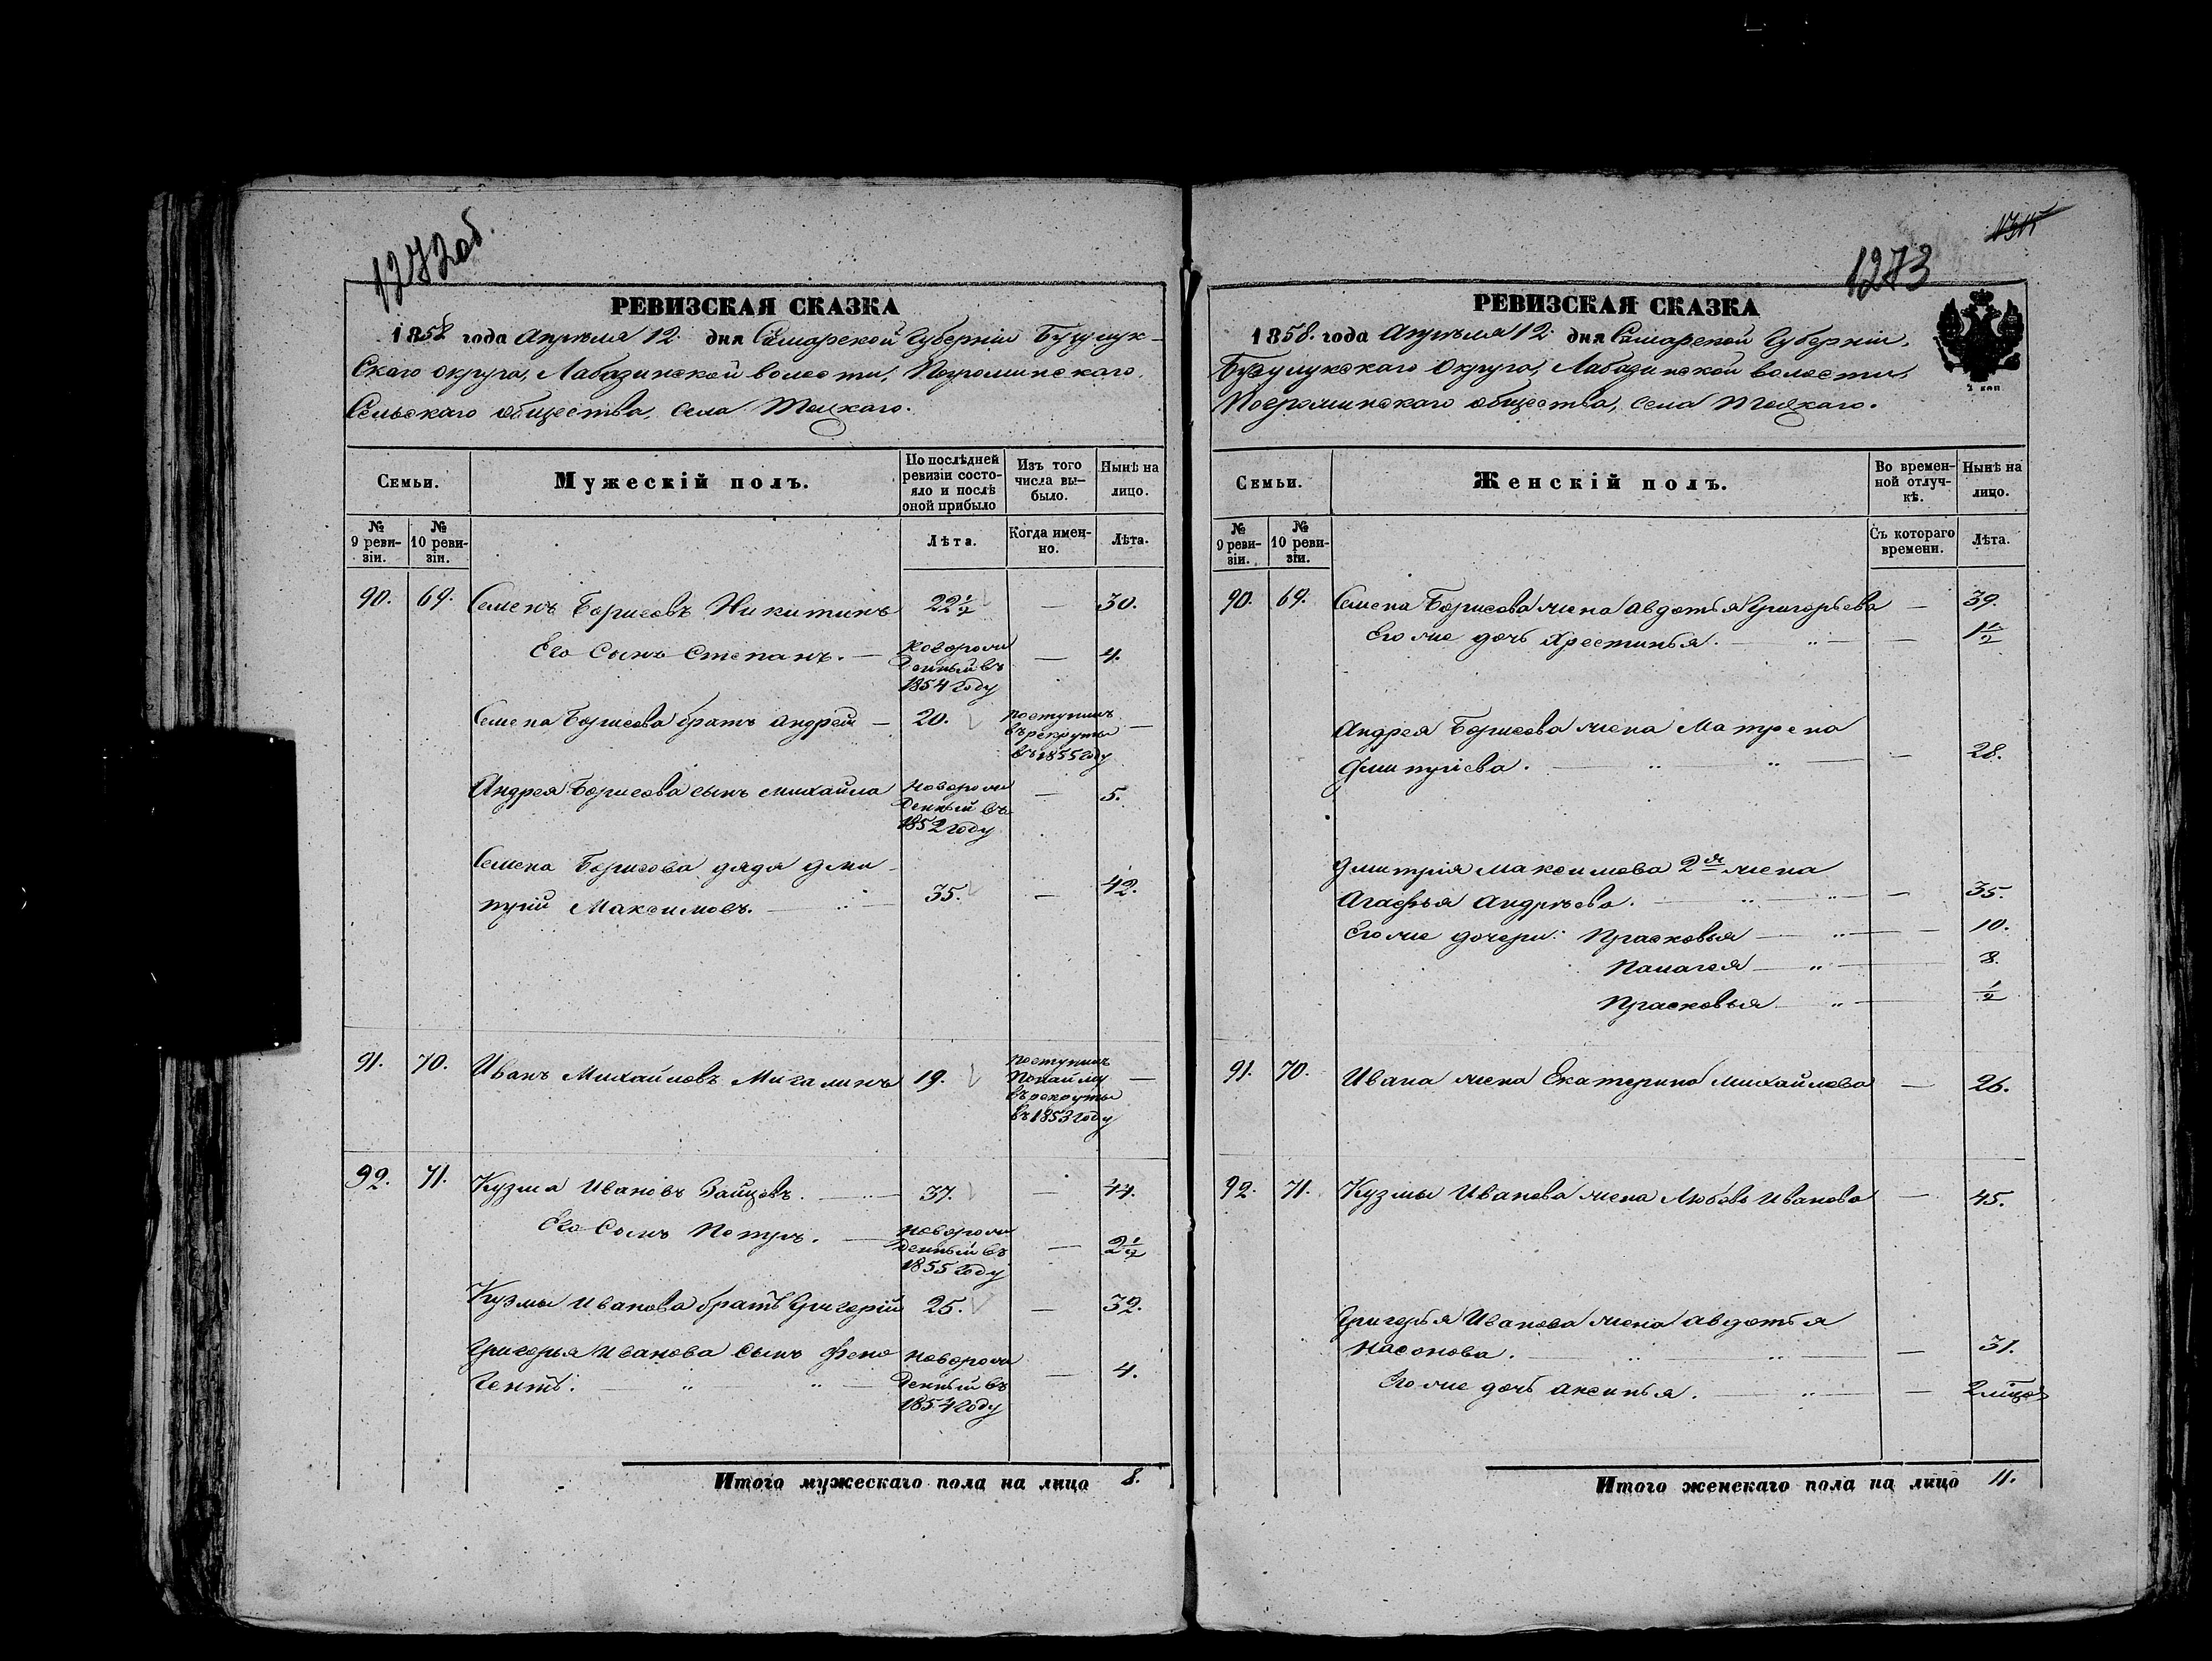 1272 об.
РЕВИЗСКАЯ СКАЗКА
1858 года Апреля 12 дня Самарской Губерніи Бузулук-
скаго округа, Лабазинской волости, Погроминскаго
Сельскаго общества, села Тоцкаго.
Семьи.
Мужескій полъ.
По послѣдней ревизіи состо-
яло и послѣ оной прибыло
Изъ того числа вы-
было.
Нынѣ на лицо.
№ 9 реви-
зіи.
№ 10 реви-
зіи.
Лѣта.
Когда имен-
но.
Лѣта.
90. 69. Семенъ Борисовъ Никитинъ 22½ — 30.
Его Сынъ Степанъ. — новорож
денный въ
1854 году — 4.
Семена Борисова братъ Андрей — 20. поступилъ
въ рекруты
въ 1855 году —
Андрея Борисова сынъ Михайла новорож
денный въ
1852 году — 5.
Семена Борисова дядя Дми
трій Максимовъ. — 35. — 42.
91. 70. Иванъ Михайловъ Мигалинъ 19. поступилъ
по найму
въ рекруты
въ 1853 году —
92. 71. Кузма Ивановъ Зайцовъ. — 37. — 44.
Его Сынъ Петръ. — новорож
денный въ
1855 году — 2½
Кузмы Иванова братъ Григорій 25. — 32.
Григорья Иванова сынъ Фено
гентъ. новорож
денный въ
1854 году — 4.
Итого мужескаго пола на лицо 8.
1273
РЕВИЗСКАЯ СКАЗКА
1858. года Апрѣля 12 дня Самарской Губерніи,
Бузулукскаго Округа, Лабазинской волости,
Погроминскаго общества, села Тоцкаго.
Семьи.
Женскій полъ.
Во времен-
ной отлуч-
кѣ.
Нынѣ на лицо.
№ 9 реви-
зіи.
№ 10 реви-
зіи.
Съ котораго времени.
Лѣта.
90. 69. Семена Борисова жена Авдотья Григорьева — 39.
Его же дочь Хрестинья. — 1½
Андрея Борисова жена Матрена
Дмитріева. — 28.
Дмитрія Максимова 2я жена
Агафья Андрѣева. — 35.
Его же дочери: Прасковья — 10.
Палагея — 8.
Прасковья — ½
91. 70. Ивана жена Екатерина Михайлова — 26.
92. 71. Кузмы Иванова жена Любовь Иванова — 45.
Григорья Иванова жена Авдотья
Насонова. — 31.
Его же дочь Аксинья. — 2 мѣцов
Итого женскаго пола на лицо 11.